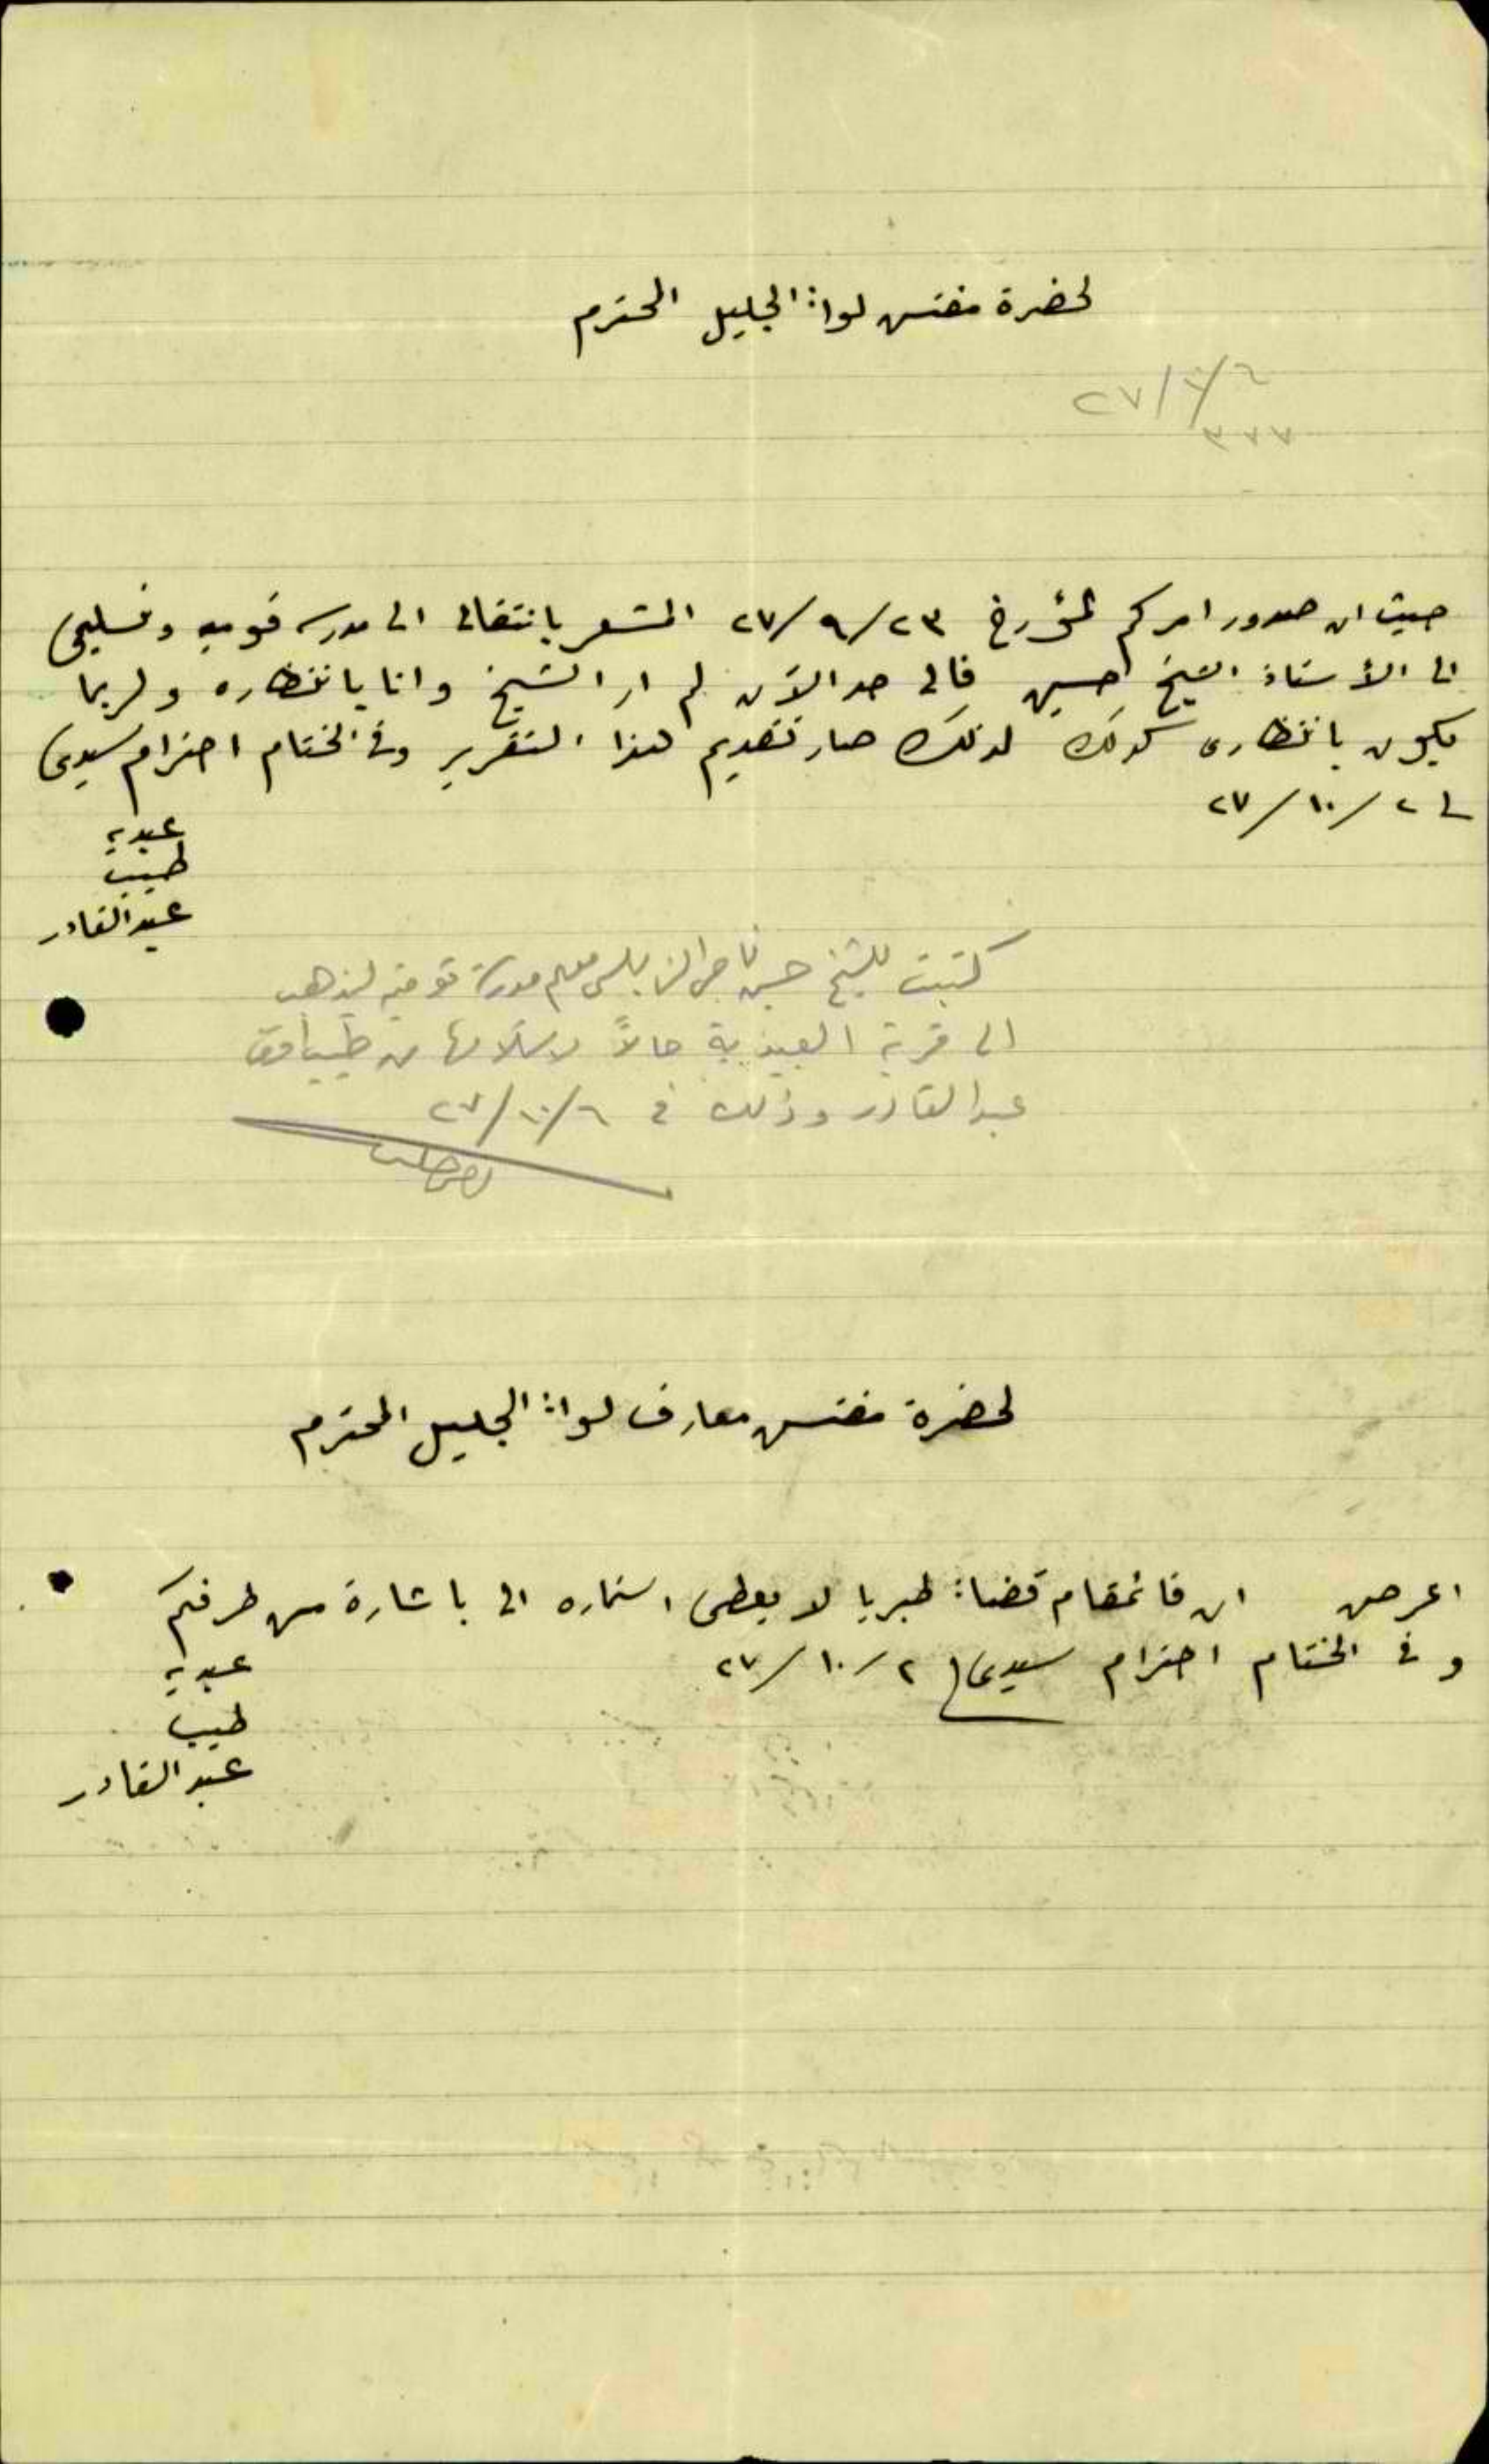 لحضرة مفتش لواء الجليل المحترم
٢٧/١٠/٦
٣٧٧
حيث ان صدور امركم المؤرخ ٢٧/٩/٢٣ المشعر بانتقالى الى مدرسة قوميه وتسليمى
الى الأستاذ الشيخ حسين فالى حد الآن لم ار الشيخ وانا بانتظاره ولربما
يكون بانتظارى كذلك لذلك صار تقديم هذا التقرير وفى الختام احترام سيدى
فى ٢/١٠/٢٧
عبديه
طيب
عبد القادر
كتبت للشيخ حسين معلم مدرسة قوميه ليذهب
الى قرية العبيدية حالاً لاستلامها من طيب افندى
عبد القادر وذلك فى ٢٧/١٠/٦
لحضرة مفتش معارف لواء الجليل المحترم
اعرض ان قائمقام قضاء طبريا لا يعطى استماره الى باشارة من طرفكم
وفى الختام احترام سيدى ٢/١٠/٢٧
عبديه
طيب
عبد القادر